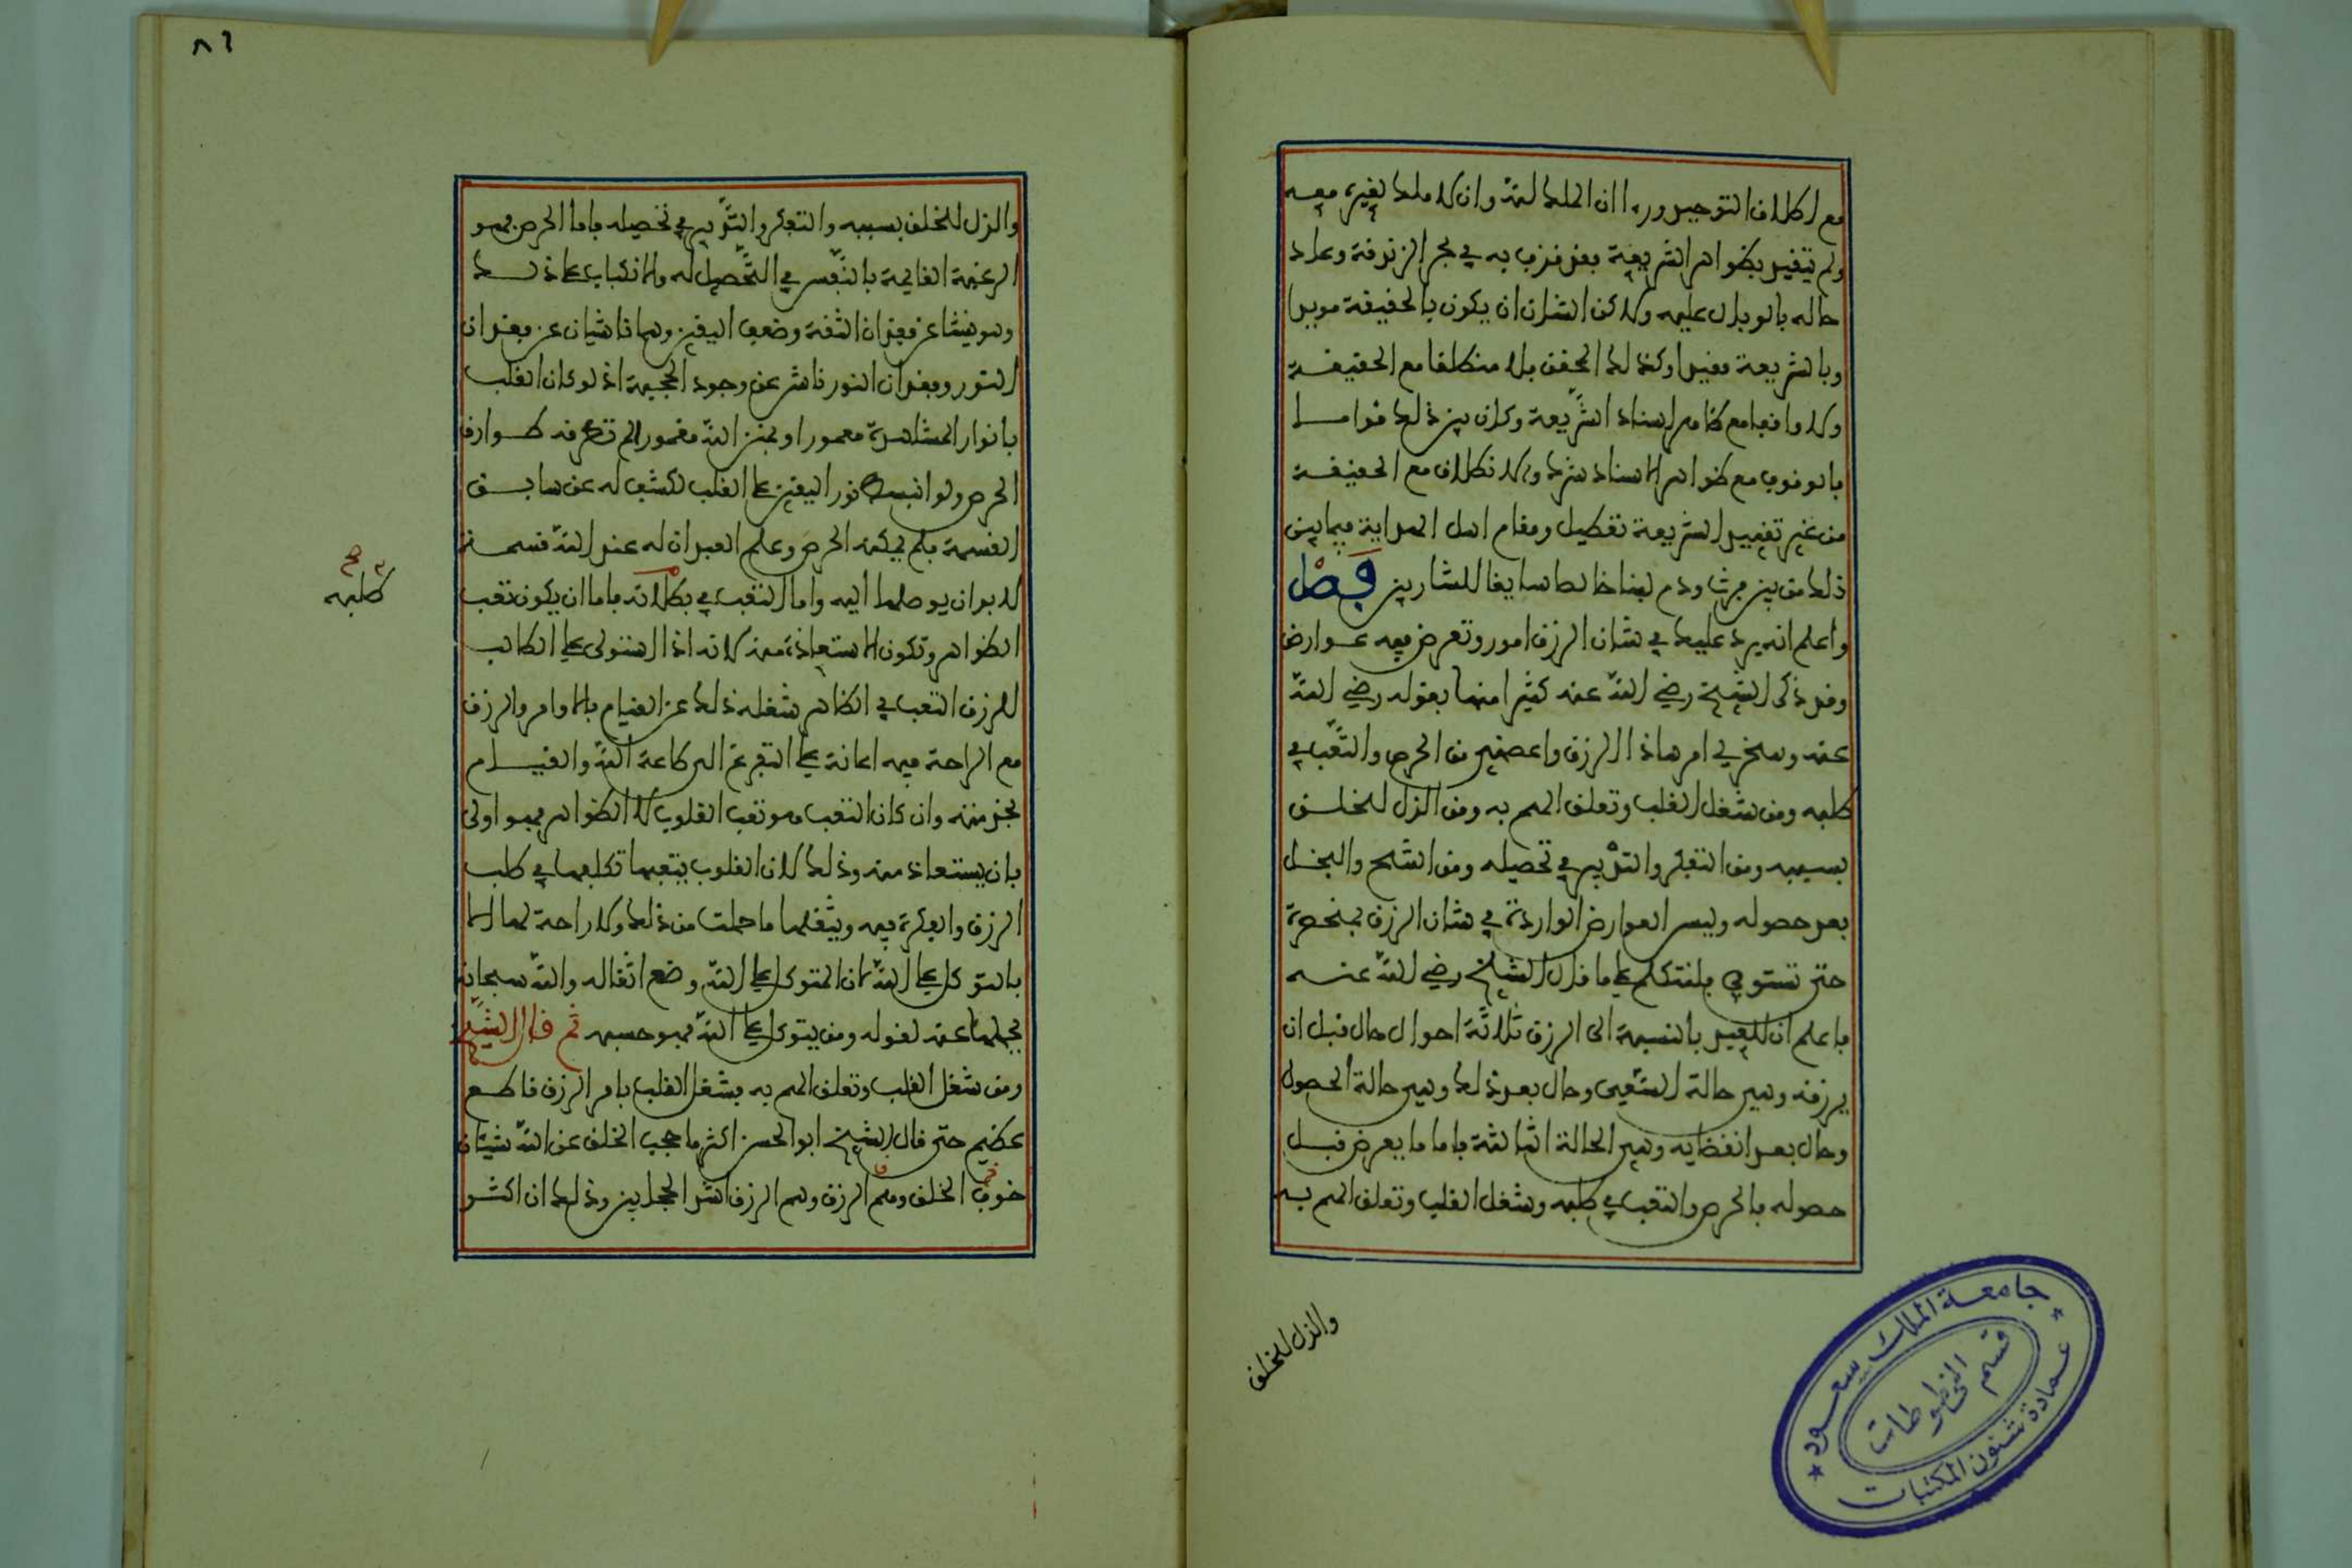 مع اطلاق التوحيد ورءا ان الملك لله وان لا ملك لغيره معه
ولم يتقيد بظواهر الشريعة فقد قذف به في بحر الزندقة وعاد
حاله بالوبال عليه ولاكن الشان ان يكون بالحقيقة مويدا
وبالشريعة مقيدا وكذلك المحقق فلا منطلقا مع الحقيقة
ولا واقفا مع ظاهر اسناد الشريعة وكان بين ذلك قواما
فالوقوف مع ظواهر الاسناد شرك والانطلاق مع الحقيقة
من غير تقييد الشريعة تعطيل ومقام اهل الهداية فيما بين
ذلك من بين فرث ودم لبنا خالصا سايغا للشاربين فصل
واعلم انه يرد عليك في شان الرزق امور وتعرض فيه عوارض
وقد ذكر الشيخ رضي الله عنه كثيرا منها بقوله رضي الله
عنه وسخر لي امر هاذا الرزق واعصمني من الحرص والتعب في
طلبه ومن شغل القلب وتعلق الهم به ومن الذل للخلق
بسببه ومن التفكر والتدبير في تحصيله ومن الشح والبخل
بعد حصوله وليس العوارض الواردة في شان الرزق بمنحصرة
حتى تستوفى فلنتكلم على ما قال الشيخ رضي الله عنه
فاعلم ان للعبد بالنسبة الى الرزق ثلاثة احوال حال قبل ان
يرزقه وهي حالة السعي وحال بعد ذلك وهي حالة الحصول
وحال بعد انقضايه وهي الحالة الثالثة فاما ما يعرض قبل
حصوله فالحرص والتعب في طلبه وشغل القلب وتعلق الهم به
والذل للخلق
جامعة الملك سعود
قسم المخطوطات
عمادة شئون المكتبات
٨٦
والذل للخلق بسببه والتفكر والتدبير في تحصيله فاما الحرص فهو
الرغبة القايمة بالنفس في التحصيل له والانكباب على ذلك
وهو ينشا عن فقدان الثقة وضعف اليقين وهما ناشيان عن فقدان
النور وفقدان النور ناشئ عن وجود الحجبة اذ لو كان القلب
بانوار المشاهدة معمورا وبمنن الله مغمورا لم تطرقه طوارق
الحرص ولو انبسط نور اليقين على القلب لكشف له عن سابق
القسمة فلم يمكنه الحرص وعلم العبد ان له عند الله قسمة
لا بد ان يوصلها اليه واما التعب في بطلانه فاما ان يكون تعب
طلبه صح
الظواهر وتكون الاستعاذة منه لانه اذا استولى على الطالب
للرزق التعب في الظاهر شغله ذلك عن القيام بالاوامر والرزق
مع الراحة فيه اعانة على التفرغ الى طاعة الله والقيام
بخدمته وان كان التعب هو تعب القلوب لا الظواهر فهو اولى
بان يستعاذ منه وذلك لان القلوب يتعبها تكلفها في طلب
الرزق والفكرة فيه ويثقلها ما حملت من ذلك ولا راحة لها الا
بالتوكل على الله لان المتوكل على الله وضع اثقاله والله سبحانه
يحملها عنه لقوله ومن يتوكل على الله فهو حسبه ثم قال الشيخ
ومن شغل القلب وتعلق الهم به فشغل القلب بامر الرزق قاطع
عظيم حتى قال الشيخ ابو الحسن اكثر ما حجب الخلق عن الله شيئان
خوف الخلق وهم الرزق وهم الرزق اشد الحجابين وذلك ان اكثر